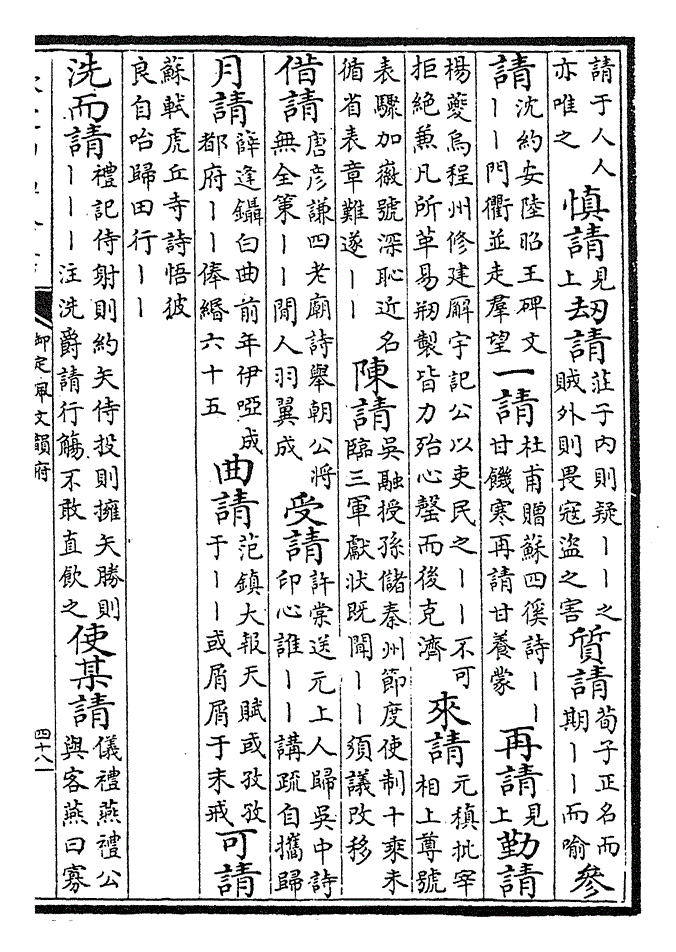 請于人人亦唯之慎請見上刼請莊子内則疑丨丨之賊外則畏寇盗之害質請荀子正名而期丨丨而喻參
請沈約安陸昭王碑文丨丨門衢並走羣望一請杜甫贈蘇四徯詩丨丨甘饑寒再請甘養蒙再請見上勤請
楊夔烏程州修建廨宇記公以吏民之丨丨不可拒絶兼凡所革易剏製皆力殆心罄而後克濟來請元稹批宰相上尊號
表驟加徽號深恥近名循省表章難遂丨丨陳請吳融授孫儲秦州節度使制十乘未臨三軍獻狀既聞丨丨須議改移
借請唐彦謙四老廟詩舉朝公將無全策丨丨閒人羽翼成受請許棠送元上人歸吳中詩印心誰丨丨講疏自攜歸
月請薛逢鑷白曲前年伊啞成都府丨丨俸緡六十五曲請范鎮大報天賦或孜孜于丨丨或屑屑于未戒可請
蘇軾虎丘寺詩悟彼良自咍歸田行丨丨
洗而請禮記侍射則約矢侍投則擁矢勝則丨丨丨注洗爵請行觴不敢直飲之使某請儀禮燕禮公與客燕曰寡
御定佩文韻府
四十八